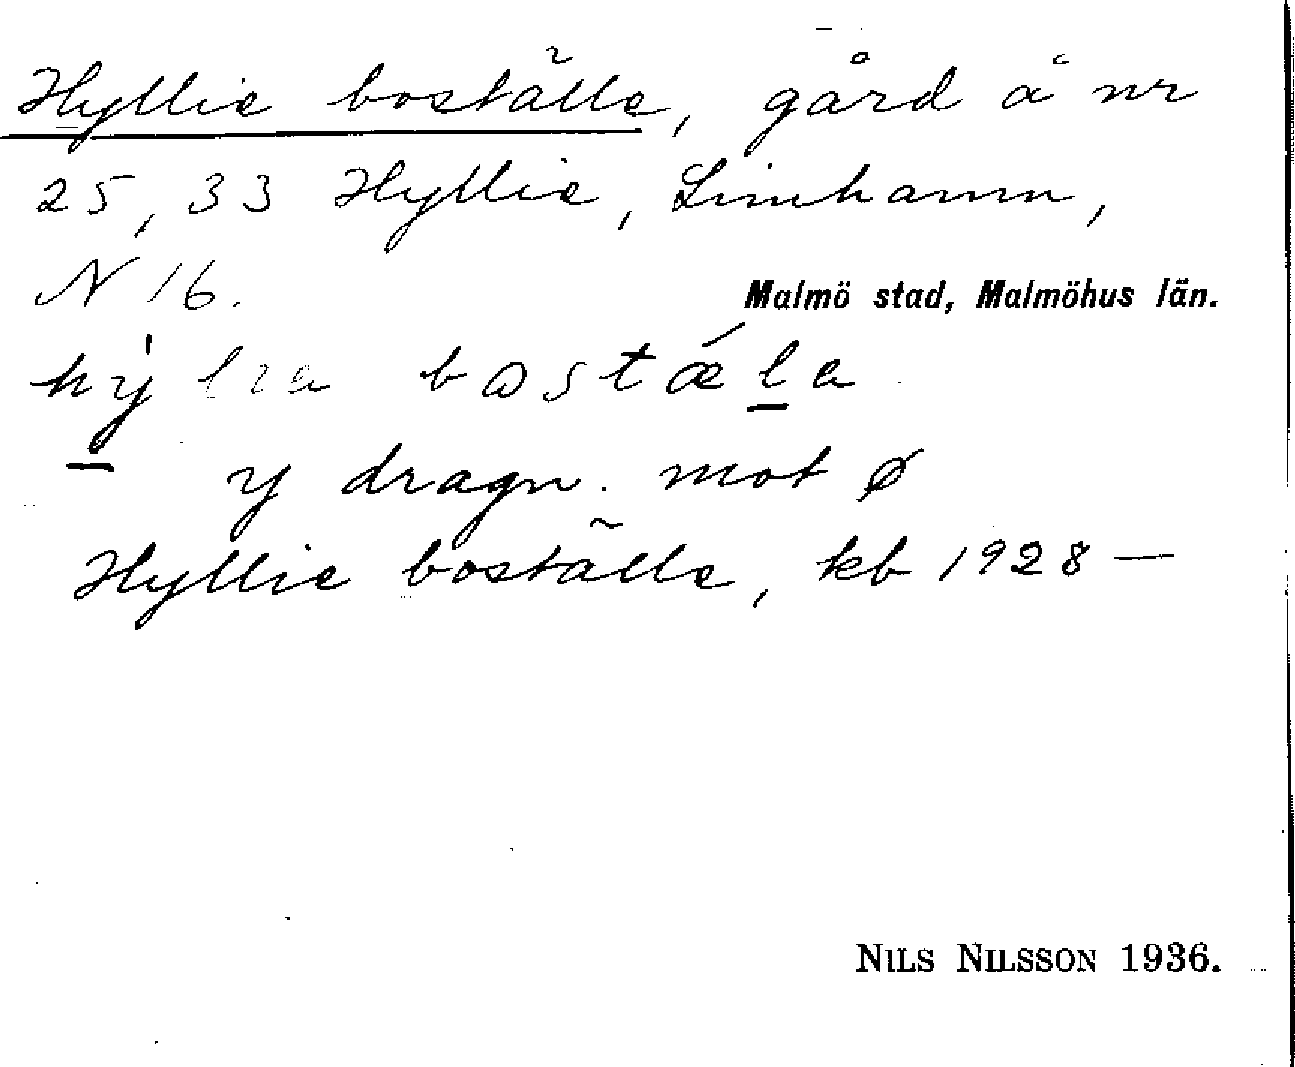 Hyllie boställe, gård å nr
25, 33 Hyllie, Limhamn,
N 16.
Malmö stad, Malmöhus län.
bostǽla
y dragn. mot ø
Hyllie boställe, kb 1928 —
NILS NILSSON 1936.